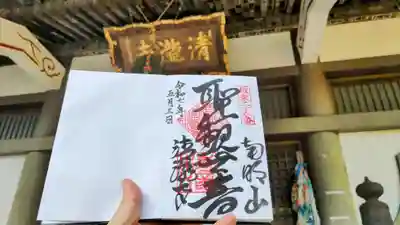 清瀧寺
南明山
聖観音
清瀧寺
令和七年
五月三日